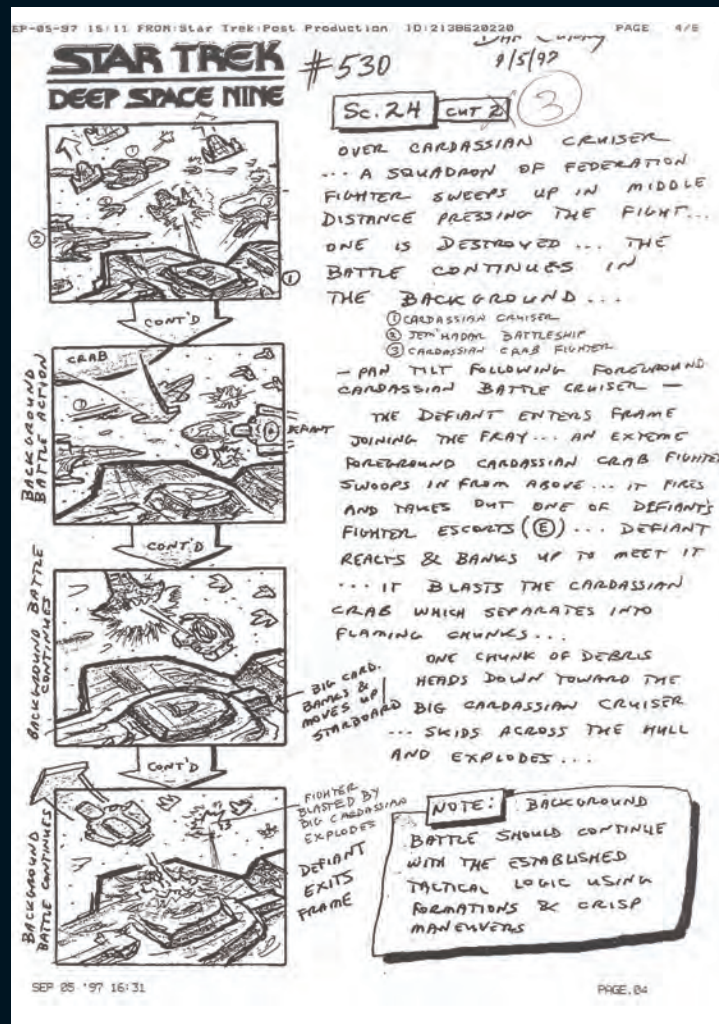 EP-05-97 15:11 FROM:Star Trek:Post Production ID:2138620220 PAGE 4/6
STAR TREK
DEEP SPACE NINE
#530
9/5/97
SC. 24 CUT 2 3
OVER CARDASSIAN CRUISER
... A SQUADRON OF FEDERATION
FIGHTER SWEEPS UP IN MIDDLE
DISTANCE PRESSING THE FIGHT...
ONE IS DESTROYED ... THE
BATTLE CONTINUES IN
THE BACKGROUND...
① CARDASSIAN CRUISER
② JEM'HADAR BATTLESHIP
③ CARDASSIAN CRAB FIGHTER
— PAN TILT FOLLOWING FOREGROUND
CARDASSIAN BATTLE CRUISER —
THE DEFIANT ENTERS FRAME
JOINING THE FRAY... AN EXTEME
FOREGROUND CARDASSIAN CRAB FIGHTER
SWOOPS IN FROM ABOVE... IT FIRES
AND TAKES OUT ONE OF DEFIANT'S
FIGHTER ESCORTS (Ⓔ)... DEFIANT
REACTS & BANKS UP TO MEET IT
... IT BLASTS THE CARDASSIAN
CRAB WHICH SEPARATES INTO
FLAMING CHUNKS...
ONE CHUNK OF DEBRIS
HEADS DOWN TOWARD THE
BIG CARDASSIAN CRUISER
... SKIDS ACROSS THE HULL
AND EXPLODES...
NOTE: BACKGROUND
BATTLE SHOULD CONTINUE
WITH THE ESTABLISHED
TACTICAL LOGIC USING
FORMATIONS & CRISP
MANEUVERS
①
②
③
②
①
CONT'D
BACKGROUND
BATTLE ACTION
CRAB
①
Ⓔ
DEFIANT
CONT'D
BACKGROUND BATTLE
CONTINUES
BIG CARD.
BANKS &
MOVES UP
STARBOARD
CONT'D
BACKGROUND
BATTLE CONTINUES
FIGHTER
BLASTED BY
BIG CARDASSIAN
EXPLODES
DEFIANT
EXITS
FRAME
SEP 05 '97 16:31 PAGE.04